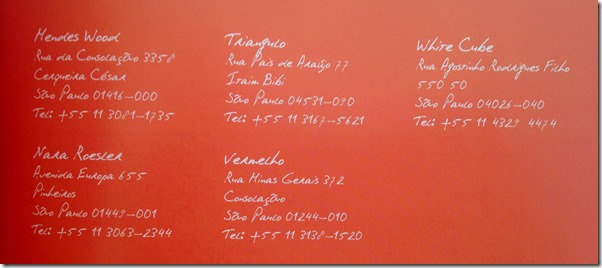 Mendes Wood
Rua da Consolação 3358
Cerqueira César
São Paulo 01416–000
Tel: +55 11 3081–1735
Triangulo
Rua Pais de Araújo 77
Itaim Bibi
São Paulo 04531–090
Tel: +55 11 3167–5621
White Cube
Rua Agostinho Rodrigues Filho
550 50
São Paulo 04026–040
Tel: +55 11 4329 4474
Nara Roesler
Avenida Europa 655
Pinheiros
São Paulo 01449–001
Tel: +55 11 3063–2344
Vermelho
Rua Minas Gerais 372
Consolação
São Paulo 01244–010
Tel: +55 11 3138–1520